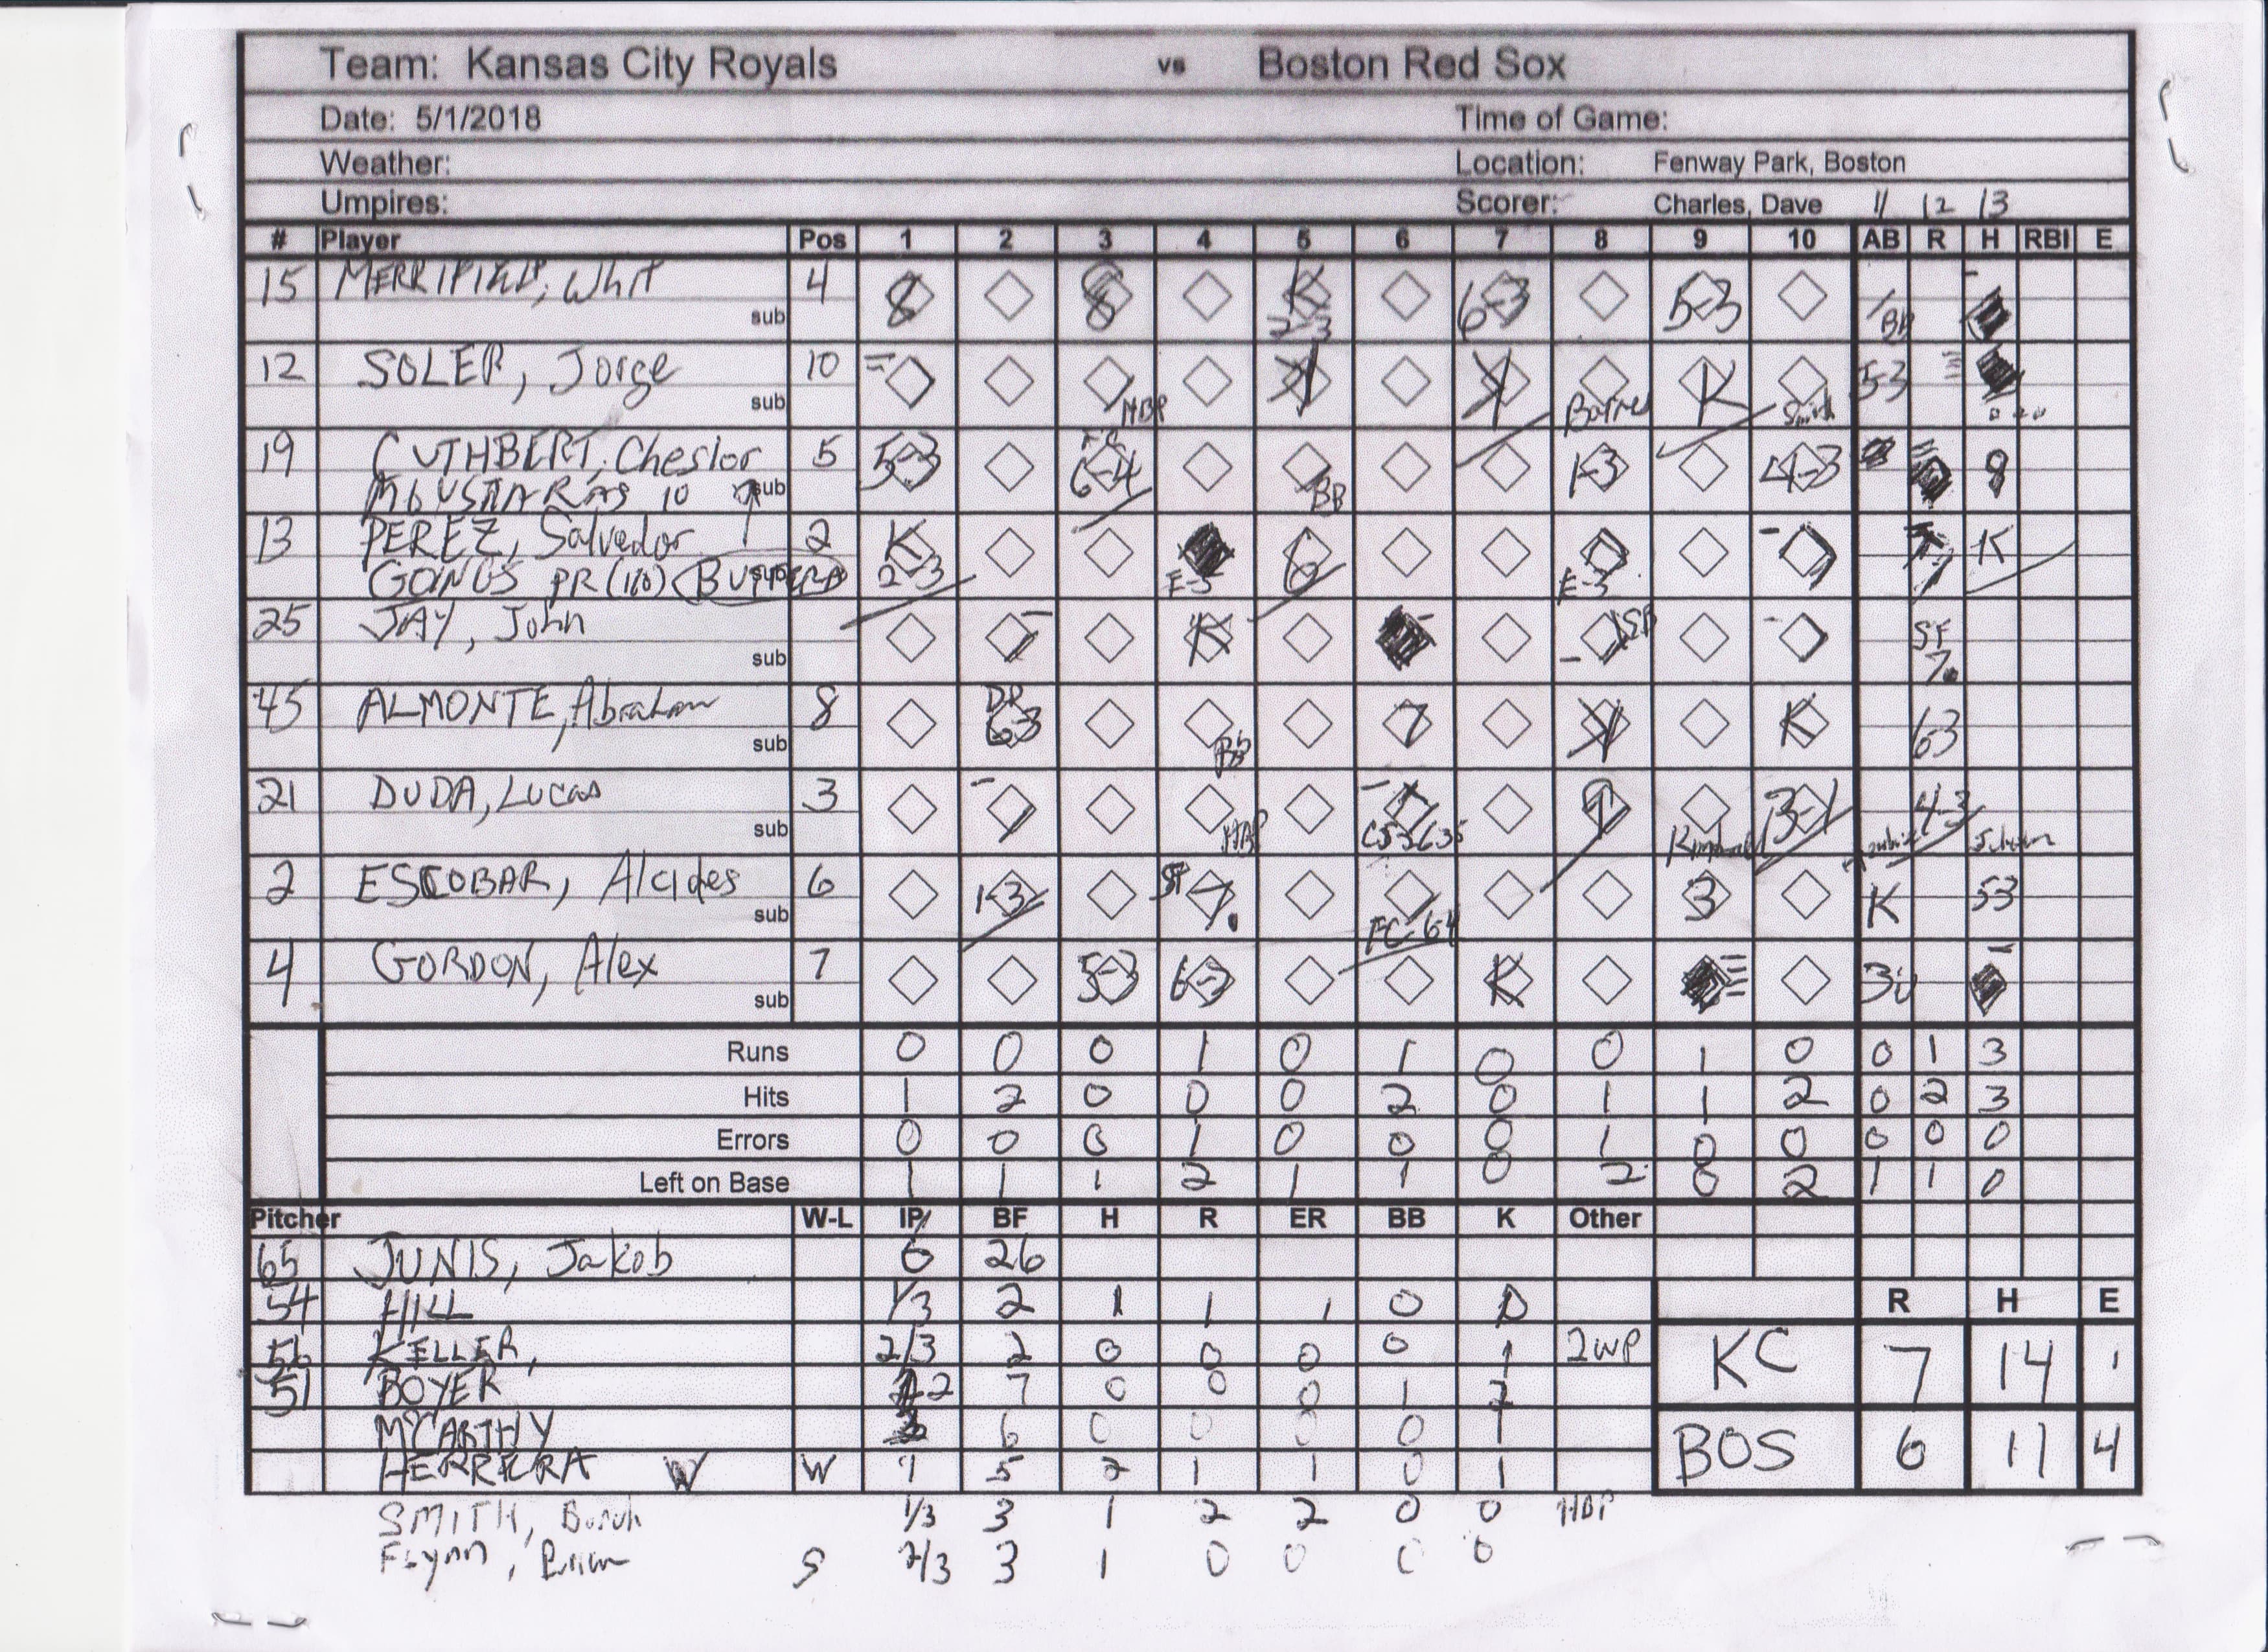 Team: Kansas City Royals vs Boston Red Sox
Date: 5/1/2018 Time of Game:
Weather: Location: Fenway Park, Boston
Umpires: Scorer: Charles, Dave 11 12 13
# Player Pos 1 2 3 4 5 6 7 8 9 10 AB R H RBI E
15 MERRIFIELD, Whit 4 8 8 K 2-3 6-3 5-3 BB
sub
12 SOLER, Jorge 10 HBP K K Barnes K Smith 5-3
sub
19 CUTHBERT, Cheslor 5 5-3 6-4 BB 1-3 4-3 8
MOUSTAKAS 10 sub
13 PEREZ, Salvador 2 K 2-3 E-5 6 E-3 7 K
GOINS PR (10) BUTERA
25 JAY, John K SB SF 7
sub
45 ALMONTE, Abraham 8 DP 6-3 BB 7 K K 63
sub
21 DUDA, Lucas 3 HBP CS 3635 7 Kimbrel 3-1 4-3 Johnson
sub
2 ESCOBAR, Alcides 6 1-3 SF 7 FC-64 3 K 53
sub
4 GORDON, Alex 7 5-3 6-3 K 3U
sub
Runs 0 0 0 1 0 1 0 0 1 0 0 1 3
Hits 1 2 0 0 0 2 0 1 1 2 0 2 3
Errors 0 0 0 1 0 0 0 1 0 0 0 0 0
Left on Base 1 1 1 2 1 1 0 2 0 2 1 1 0
Pitcher W-L IP BF H R ER BB K Other
65 JUNIS, Jakob 6 26
54 HILL 1/3 2 1 1 1 0 0
R H E
56 KELLER, 2/3 2 0 0 0 0 1 2WP
KC 7 14 1
51 BOYER 2 7 0 0 0 1 2
McCARTHY 6 0 0 0 0 1
BOS 6 11 4
HERRERA W W 1 5 2 1 1 0 1
SMITH, Burch 1/3 3 1 2 2 0 0 HBP
Flynn, Brian S 2/3 3 1 0 0 0 0